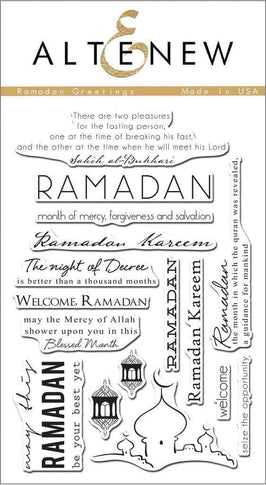 ALTENEW
Ramadan Greetings
Made in USA
There are two pleasures
for the fasting person,
one at the time of breaking his fast,
and the other at the time when he will meet his Lord
Sahih al-Bukhari
RAMADAN
month of mercy, forgiveness and salvation
Ramadan Kareem
The night of Decree
is better than a thousand months
WELCOME RAMADAN
may the Mercy of Allah
shower upon you in this
Blessed Month
may this
RAMADAN
be your best yet
RAMADAN
Ramadan Kareem
Ramadan
the month in which the quran was revealed,
a guidance for mankind
welcome
seize the opportunity